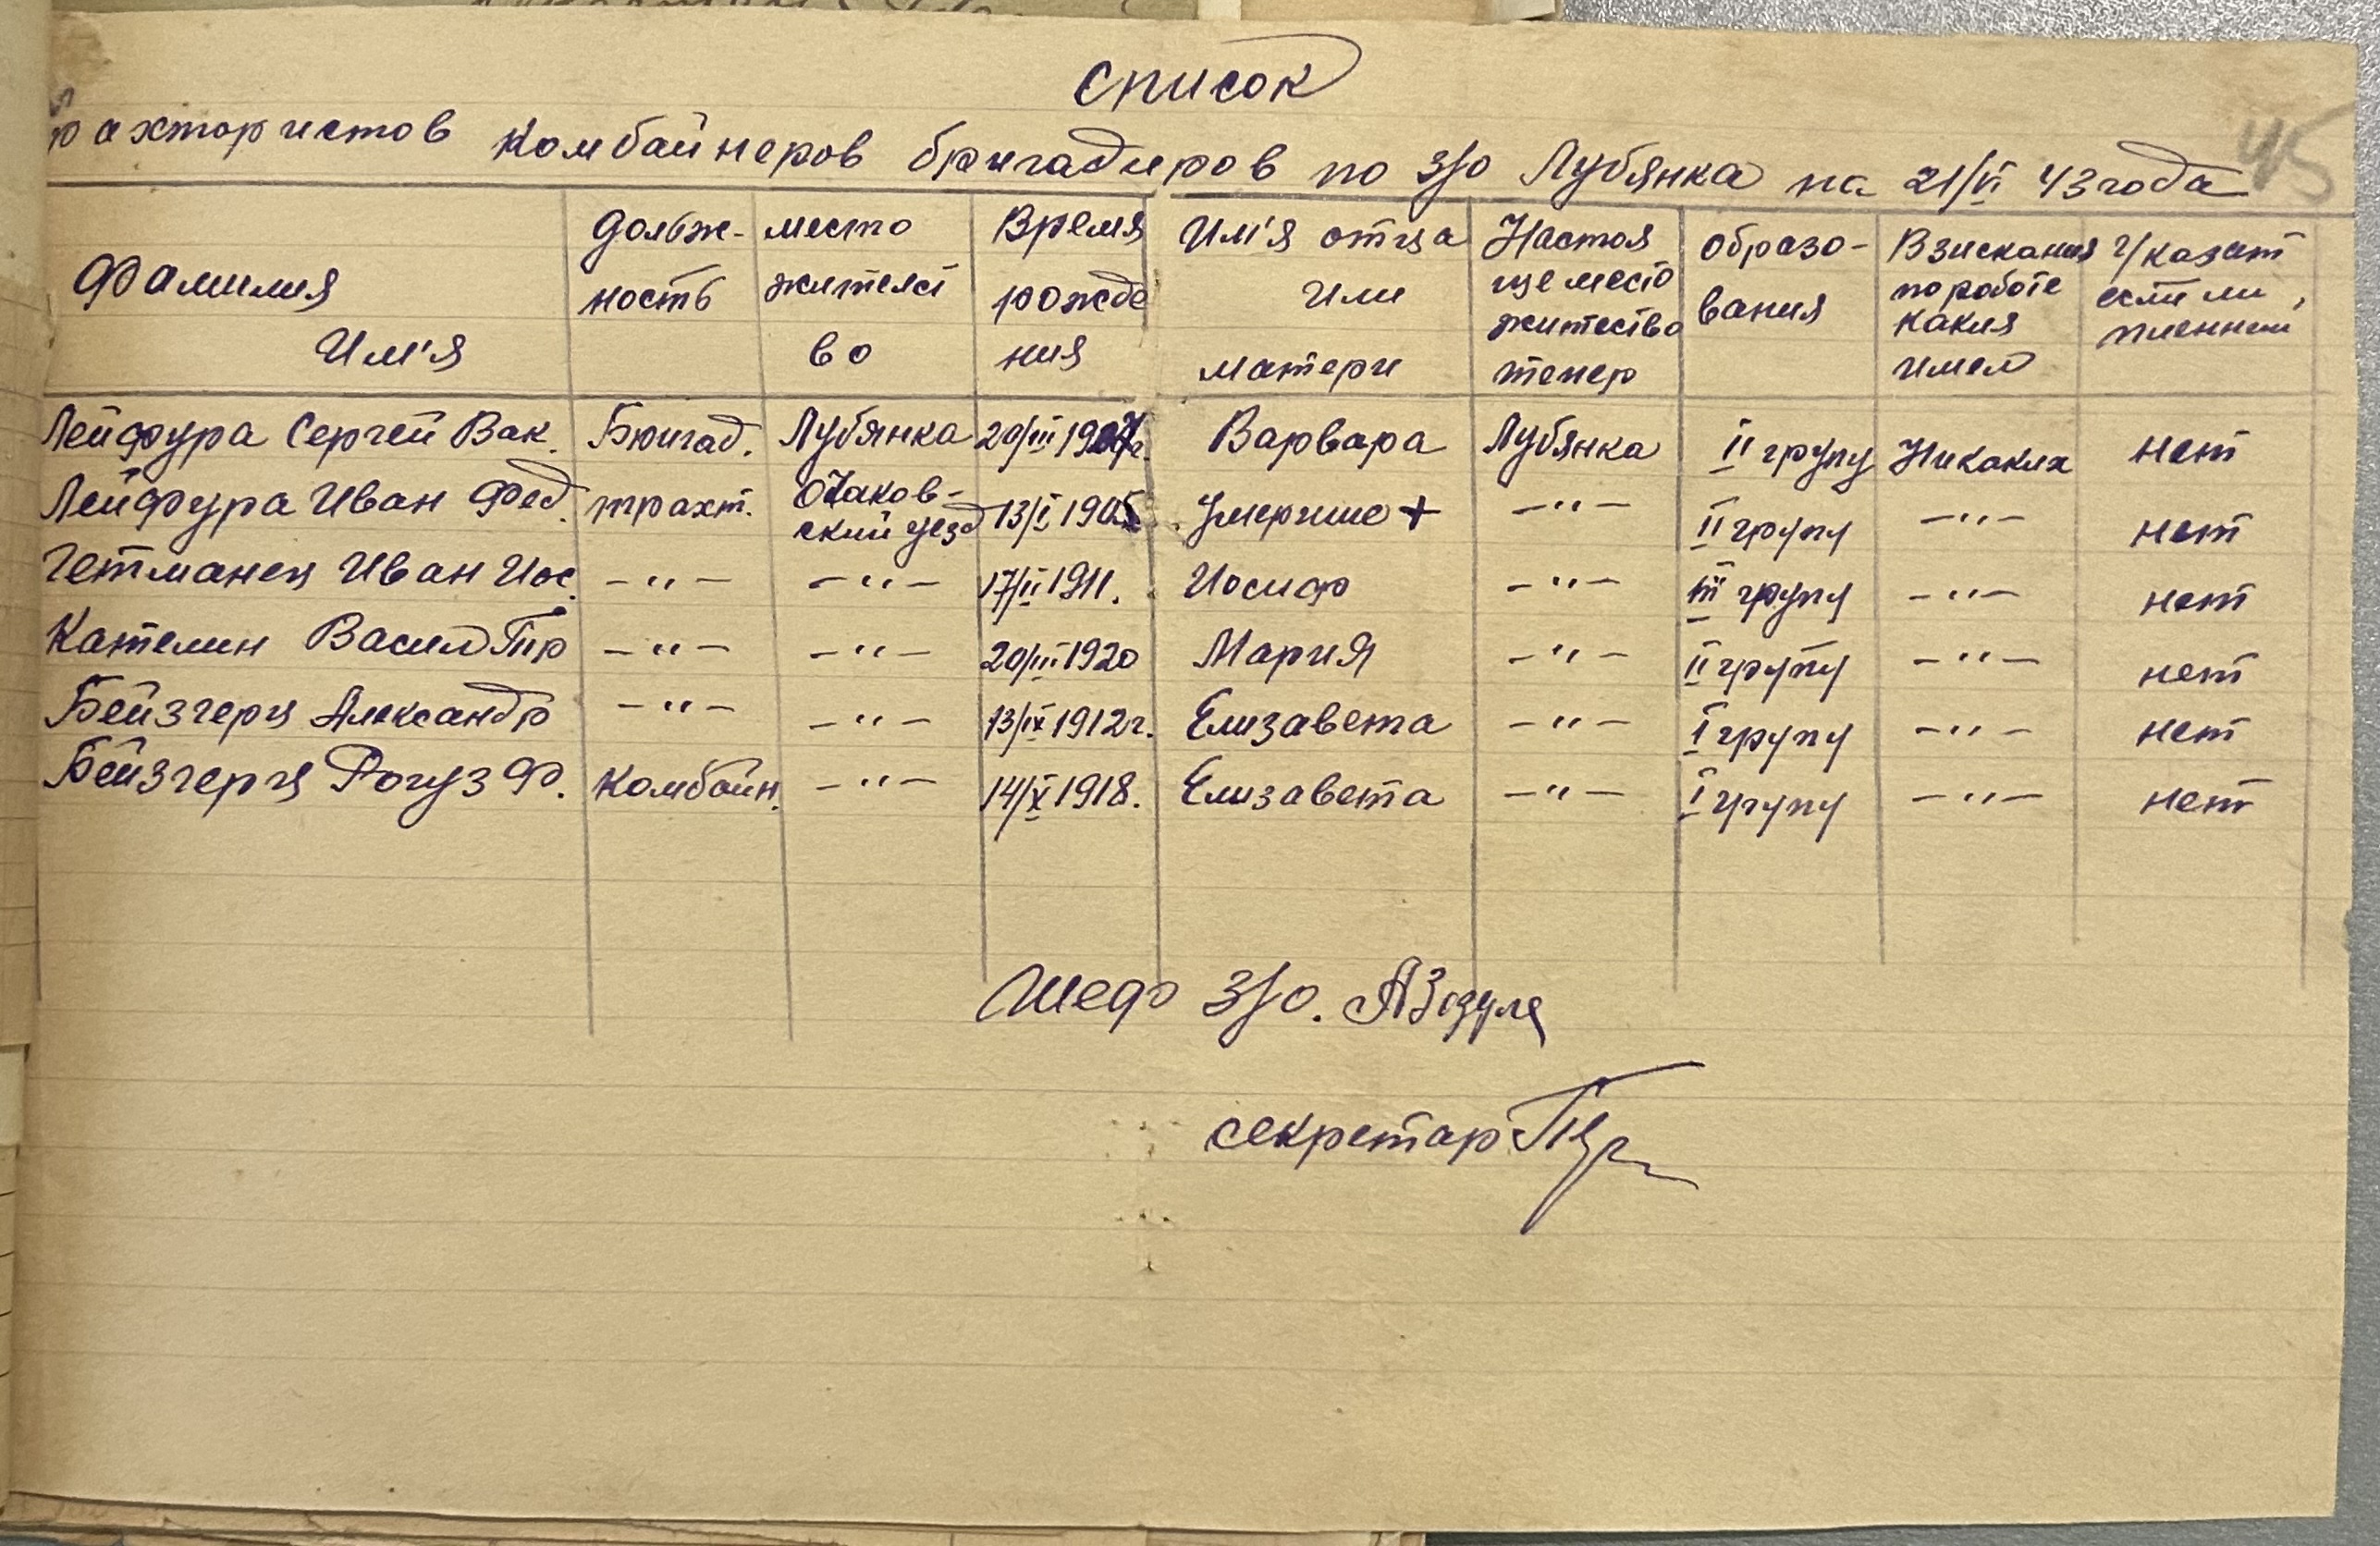 список
рахтористов комбайнеров бригадиров по з/о Лубянка на 21/VI 43 года
45
Фамилия Им'я | Должность | место жителст во | Время рожде ния | Им'я отца или матери | Настоя ще место житества тепер | образо- вания | Взискания по роботе какия имел | Указат если ли, пленним
Лейфура Сергей Вак. | Бригад. | Лубянка | 20/III 1907г. | Варвара | Лубянка | II групу | Никаких | нет
Лейфура Иван Фед. | трахт. | Очаков- ский уезд | 13/I 1905 | Умершие + | -"- | II групу | -"- | нет
Гетманец Иван Иос. | -"- | -"- | 17/II 1911. | Иосиф | -"- | III групу | -"- | нет
Кателин Васил Гир | -"- | -"- | 20/III 1920 | Мария | -"- | II групу | -"- | нет
Бейзгерц Александр | -"- | -"- | 13/IX 1912г. | Елизавета | -"- | I групу | -"- | нет
Бейзгерц Рогуз Ф. | Комбайн. | -"- | 14/X 1918. | Елизавета | -"- | I групу | -"- | нет
Шеф з/о. АЗозуля
секретар